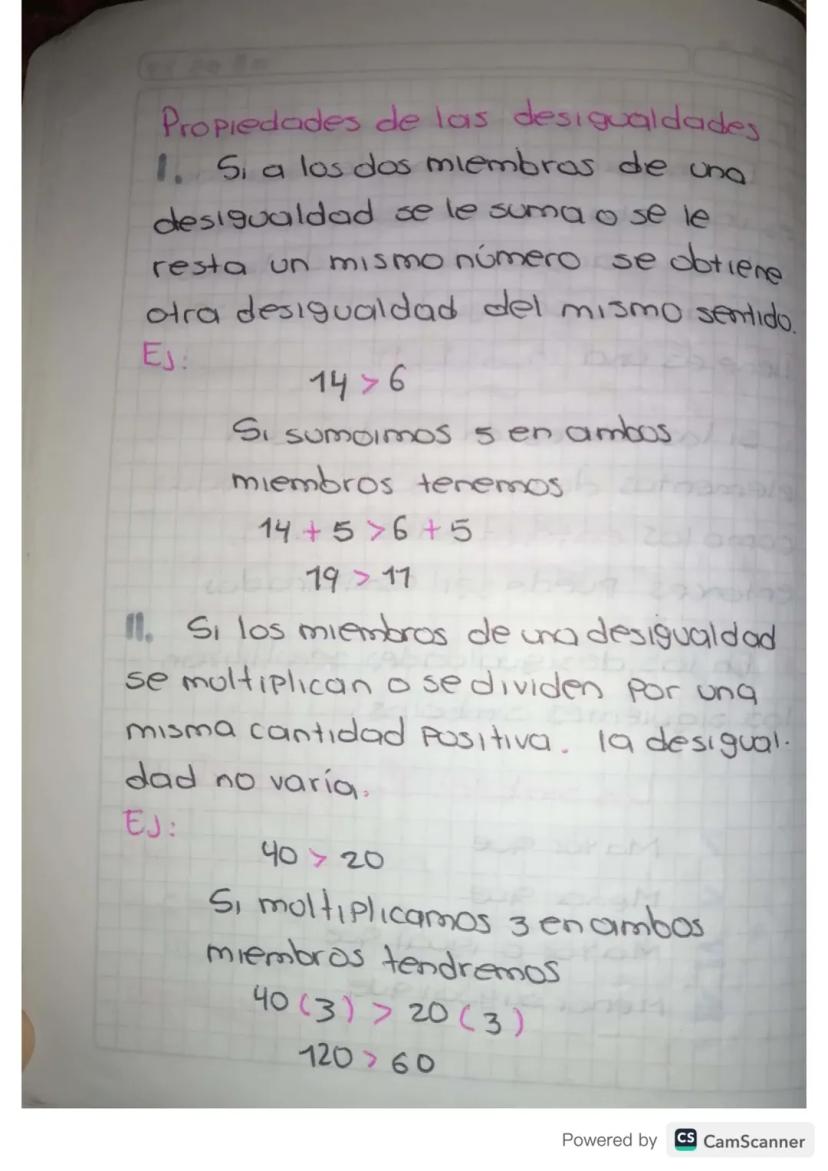 Propiedades de las desigualdades
I. Si a los dos miembros de una
desigualdad se le suma o se le
resta un mismo número se obtiene
otra desigualdad del mismo sentido.
EJ:
14 > 6
Si sumoimos 5 en ambos
miembros tenemos
14 + 5 > 6 + 5
19 > 11
II. Si los miembros de una desigualdad
se moltiplican o se dividen por una
misma cantidad positiva. la desigual-
dad no varía.
EJ:
40 > 20
Si moltiplicamos 3 en ambos
miembros tendremos
40 (3) > 20 (3)
120 > 60
Powered by CS CamScanner